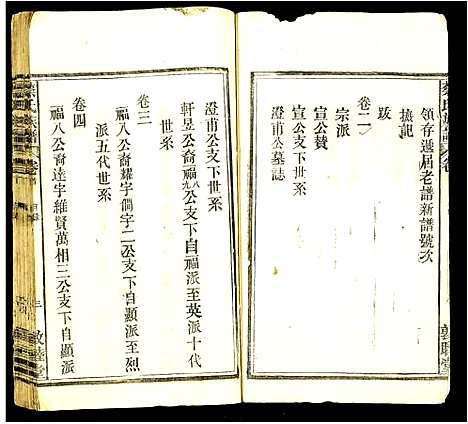 領存遞届老譜新譜號次
摭記
跋
卷二
宗派
宣公贊
宣公支下世系
澄甫公墓誌
澄甫公支下世系
軒昱公裔福八公支下自福派至英派十代
世系
卷三
福八公裔耀宇
宇二公支下自顯派至烈
派五代世系
卷四
福八公裔達宇維賢萬相三公支下自顯派
三
敦睦堂